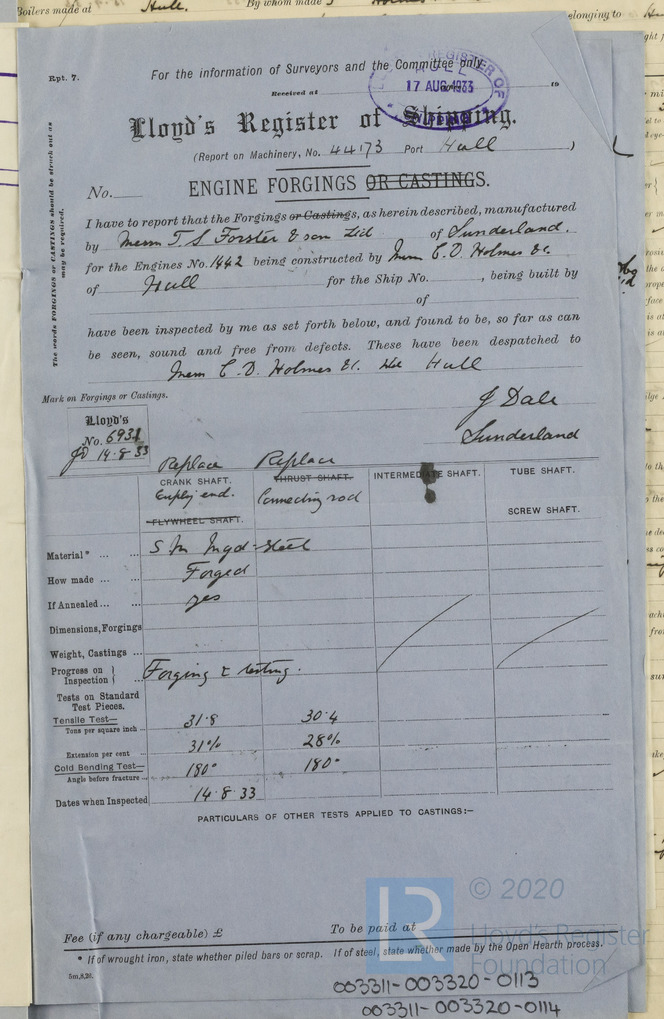 Boilers made at Hull. By whom made Holmes belonging to
Rpt. 7.
For the information of Surveyors and the Committee only
Received at 19
LLOYD'S REGISTER OF
17 AUG 1933
Lloyd's Register of Shipping.
(Report on Machinery, No. 44173 Port Hull )
No. ENGINE FORGINGS OR CASTINGS.
The words FORGINGS or CASTINGS should be struck out as
may be required.
I have to report that the Forgings or Castings, as herein described, manufactured
by Messrs T. S. Forster & son Ltd of Sunderland.
for the Engines No. 1442 being constructed by Messrs C. D. Holmes &c.
of Hull for the Ship No. , being built by
of
have been inspected by me as set forth below, and found to be, so far as can
be seen, sound and free from defects. These have been despatched to
Messrs C. D. Holmes &c. Ltd Hull
Mark on Forgings or Castings.
J Dale
Sunderland
Lloyd's
No. 6931
JD 14.8.33
Replace Replace
CRANK SHAFT. THRUST SHAFT. INTERMEDIATE SHAFT. TUBE SHAFT.
end. Connecting rod
FLYWHEEL SHAFT. SCREW SHAFT.
Material* ... ... S M Ingot steel
How made ... ... Forged
If Annealed... ... yes
Dimensions, Forgings
Weight, Castings ...
Progress on
Inspection ... Forging & testing.
Tests on Standard
Test Pieces.
Tensile Test— 31.8 30.4
Tons per square inch ...
Extension per cent 31% 28%
Cold Bending Test— 180° 180°
Angle before fracture ...
Dates when Inspected 14.8.33
PARTICULARS OF OTHER TESTS APPLIED TO CASTINGS:—
Fee (if any chargeable) £ To be paid at
* If of wrought iron, state whether piled bars or scrap. If of steel, state whether made by the Open Hearth process.
5m,8,26.
LR © 2020
Lloyd's Register
Foundation
003311-003320-0113
003311-003320-0114